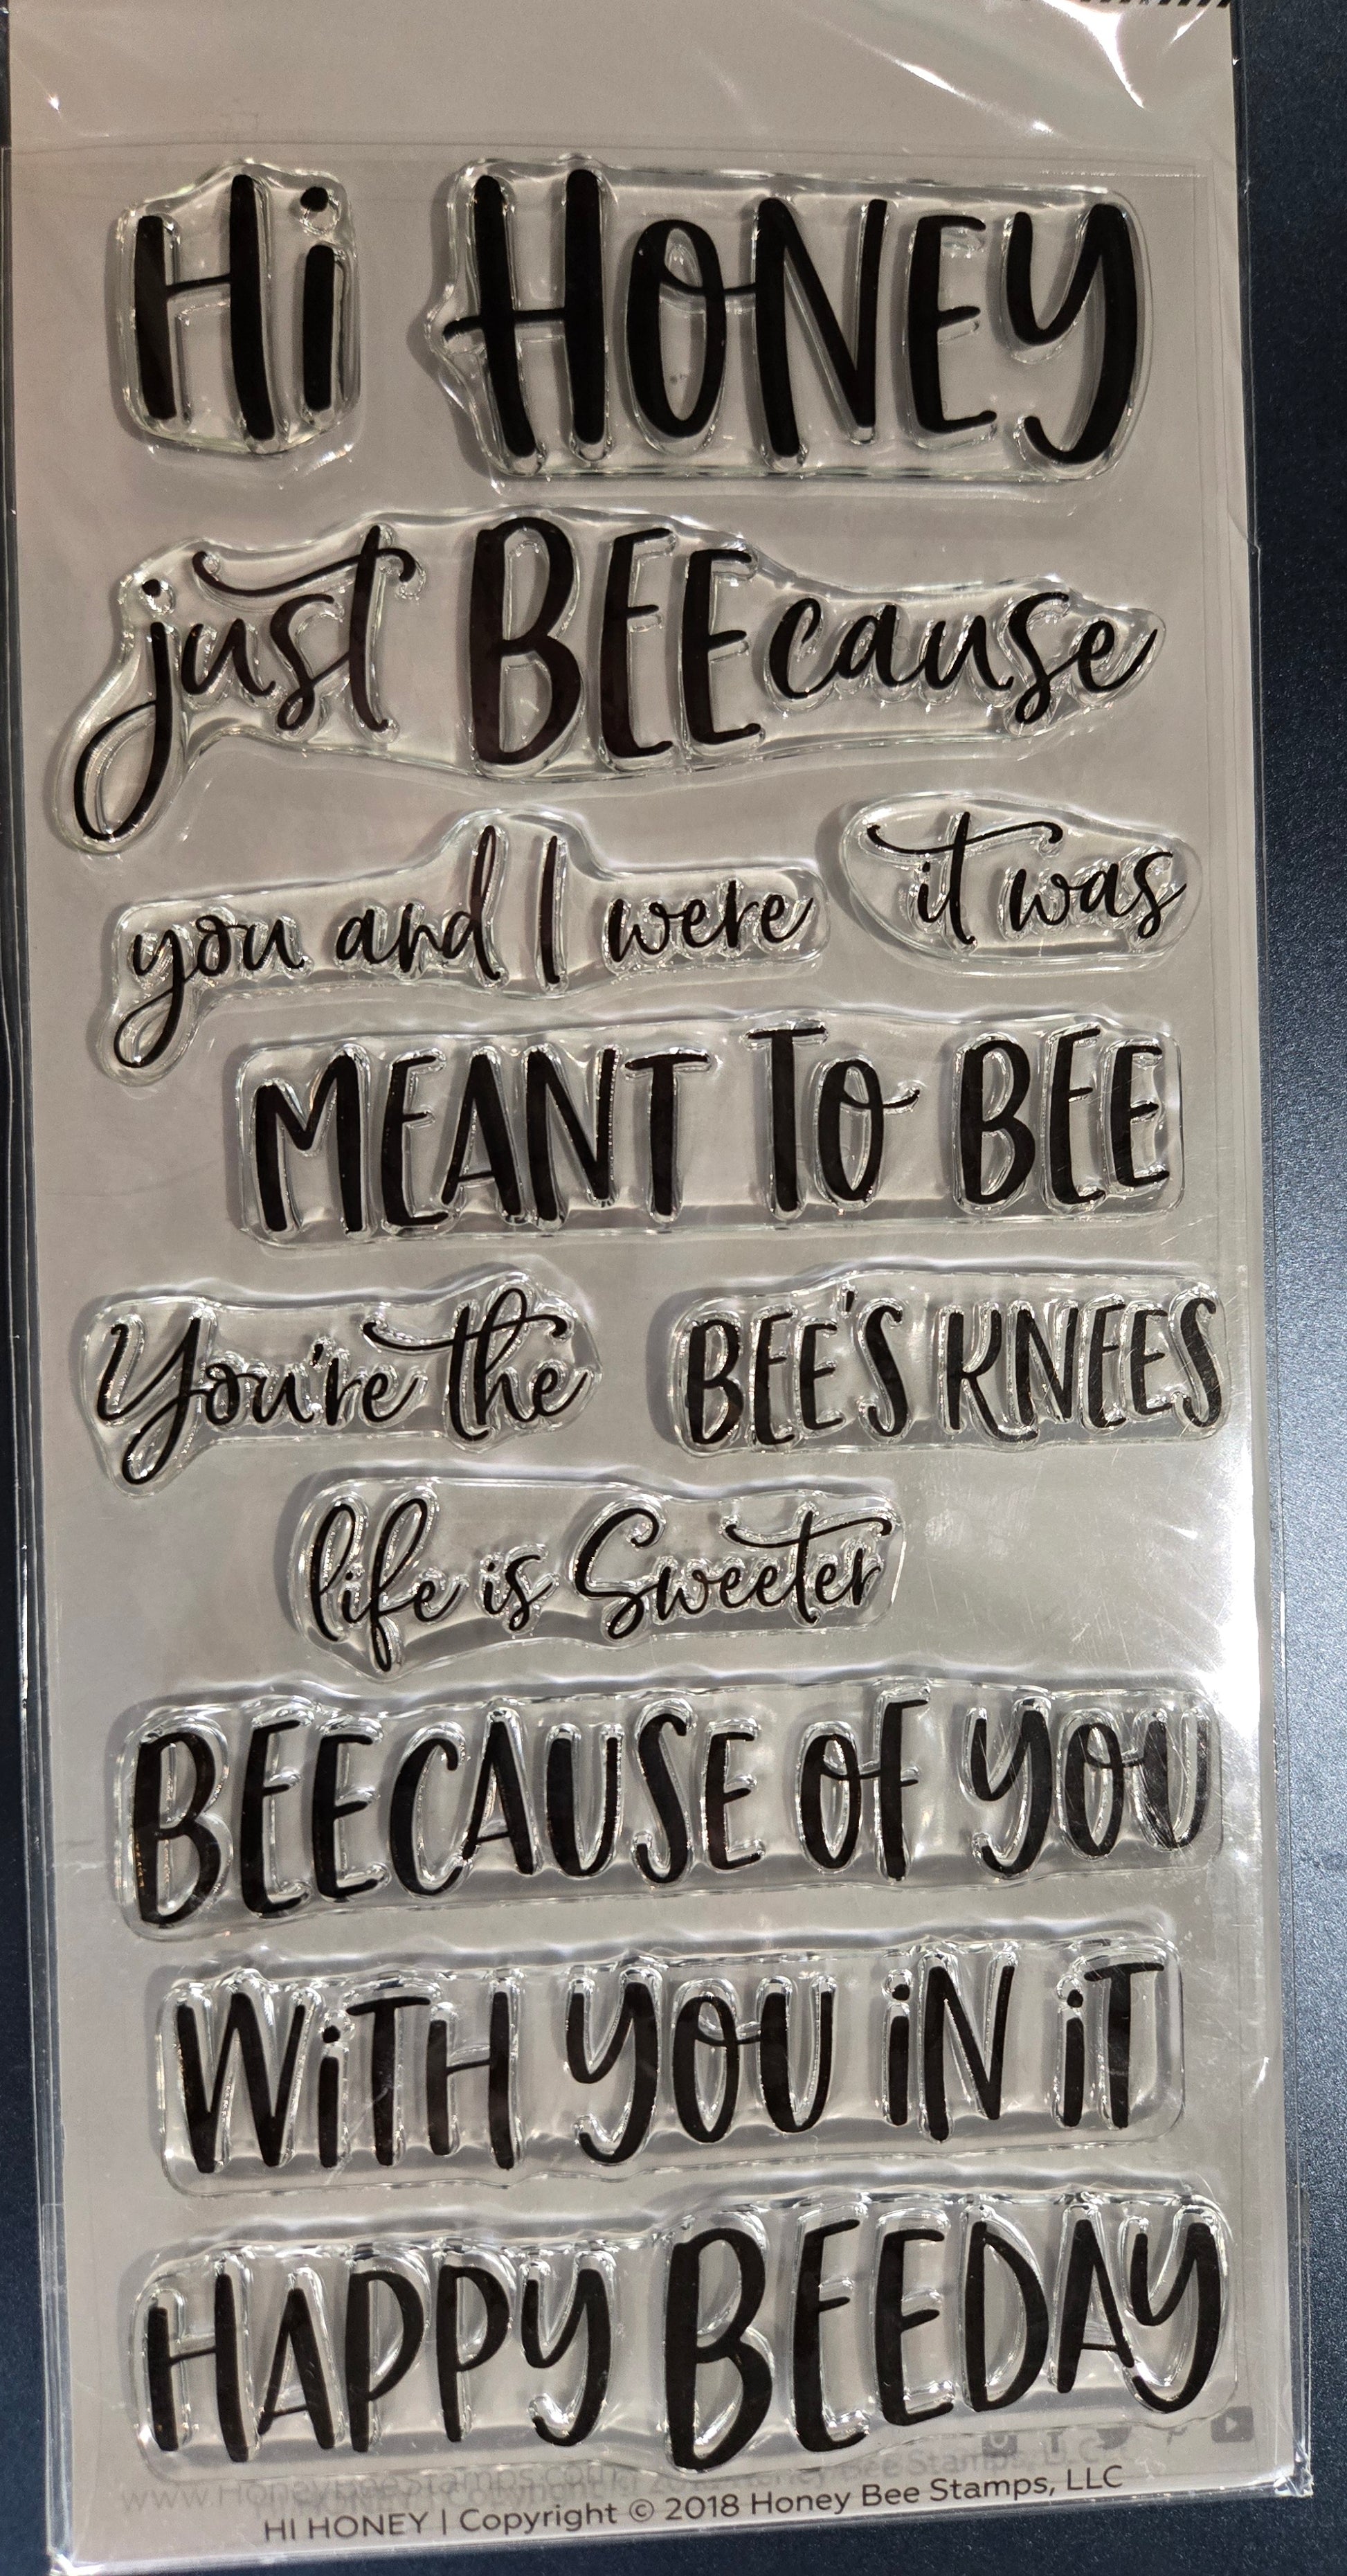 Hi HONEY
just BEEcause
you and I were it was
MEANT TO BEE
You're the BEE'S KNEES
life is Sweeter
BEECAUSE OF YOU
WiTH YOU iN iT
HAPPY BEEDAY
www.HoneyBeeStamps.com
HI HONEY | Copyright © 2018 Honey Bee Stamps, LLC